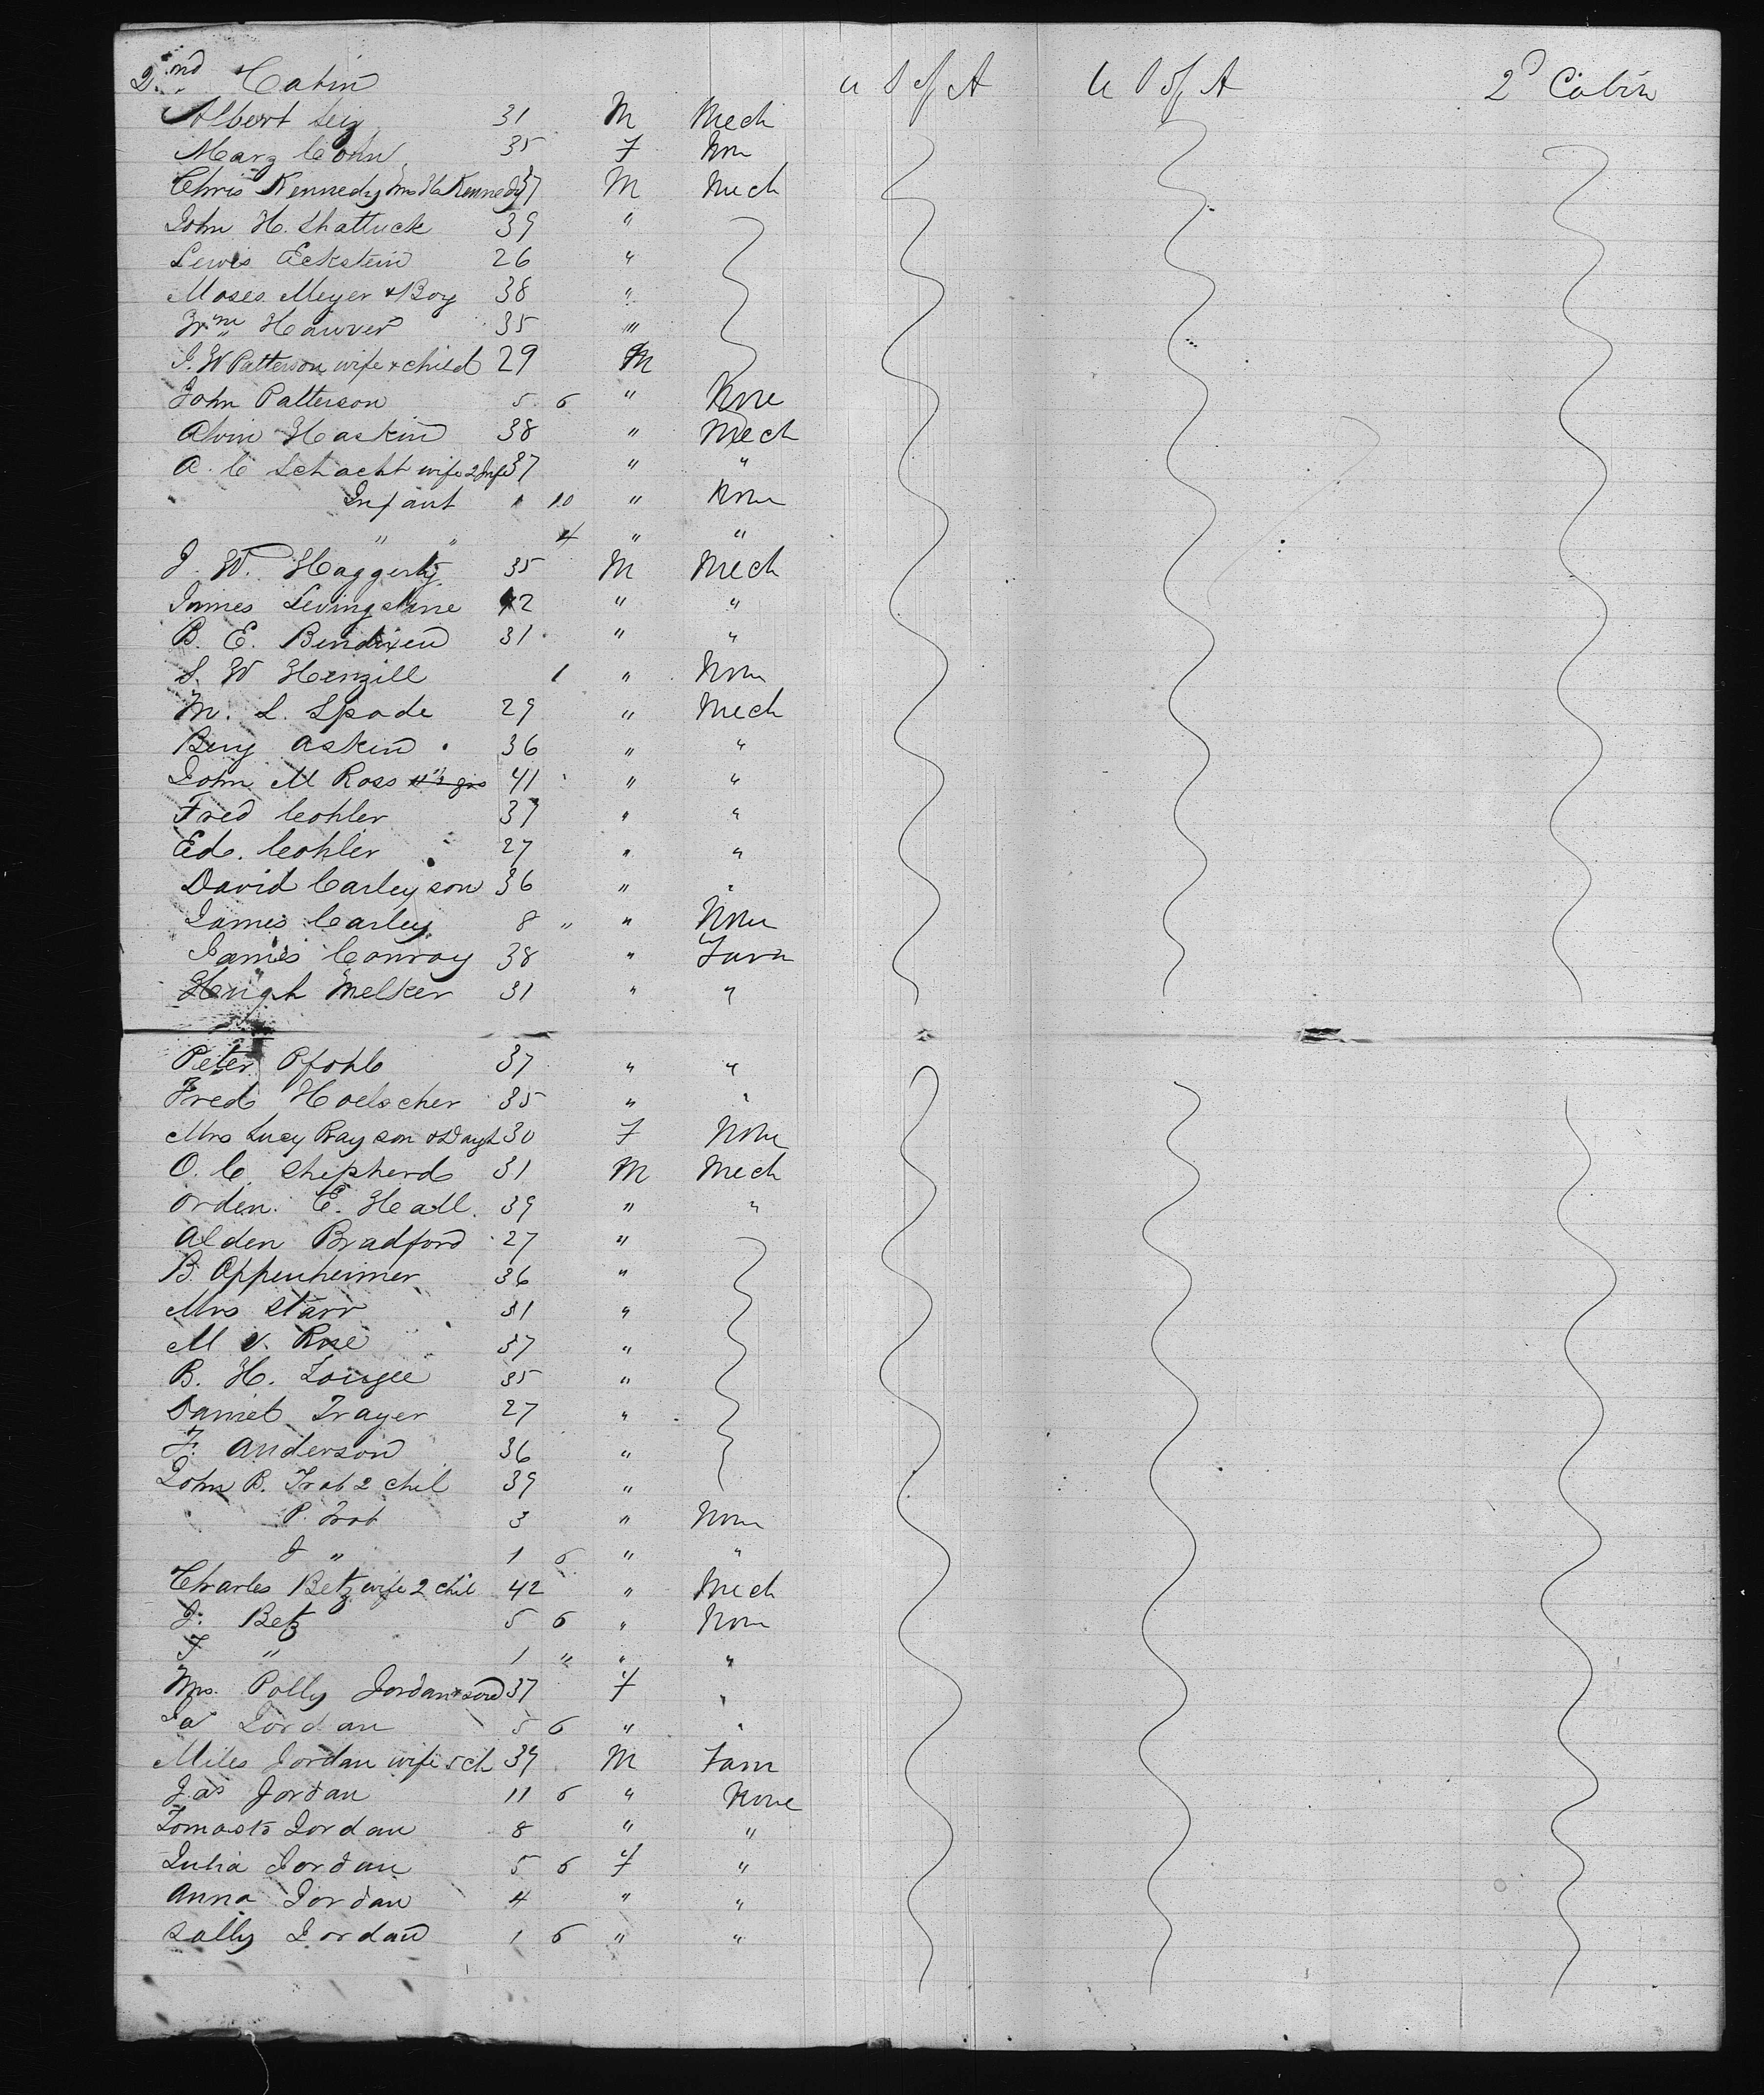 2nd Cabin U S of A U S of A 2d Cabin
Albert Leiz 31 M Mech
Marg Cohn 35 F Non
Chris Kennedy Kennedy 37 M Mech
John H. Shattuck 39 "
Lewis Eckstein 26 "
Moses Meyer & Boy 38 "
Wm Hauver 35 "
J. W Patterson wife & child 29 M
John Patterson 5 6 " None
Alvin Haskin 38 " Mech
A. C Schacht wife 2 Inf 37 " "
Infant 1 10 " None
" " 4 " "
J. W. Haggerty 35 M Mech
James Livingstine 42 " "
B. E. Bendixen 31 " "
S. W Henzill 1 " None
M. L. Spade 29 " Mech
Benj Askin 36 " "
John M Ross 41 " "
Fred Cohler 37 " "
Ed. Cohler 27 " "
David Carley son 36 " "
James Carley 8 " " None
James Conroy 38 " Farm
Hugh Melker 31 " "
Peter Pfohl 37 " "
Fred Hoelscher 35 " "
Mrs Lucy Ray son & Daugh 30 F None
O. C. Shipherd 31 M Mech
Orden. E. Hall. 39 " "
Alden Bradford 27 "
B. Oppenheimer 36 "
Mrs Starr 31 "
M V. Rose 37 "
B. H. Lougee 35 "
Daniel Trayer 27 "
F. Anderson 36 "
John B. Trat 2 chil 39 "
P. Trat 3 " None
J " 1 6 " "
Charles Betz wife 2 chil 42 " Mech
J. Betz 5 6 " None
F " 1 " " "
Mrs. Polly Jordan & son 37 F "
Ja Jordan 5 6 " "
Miles Jordan wife 5 ch 39 M Farm
Jas Jordan 11 6 " None
Jordan 8 " "
Julia Jordan 5 6 F "
Anna Jordan 4 " "
Sally Jordan 1 6 " "